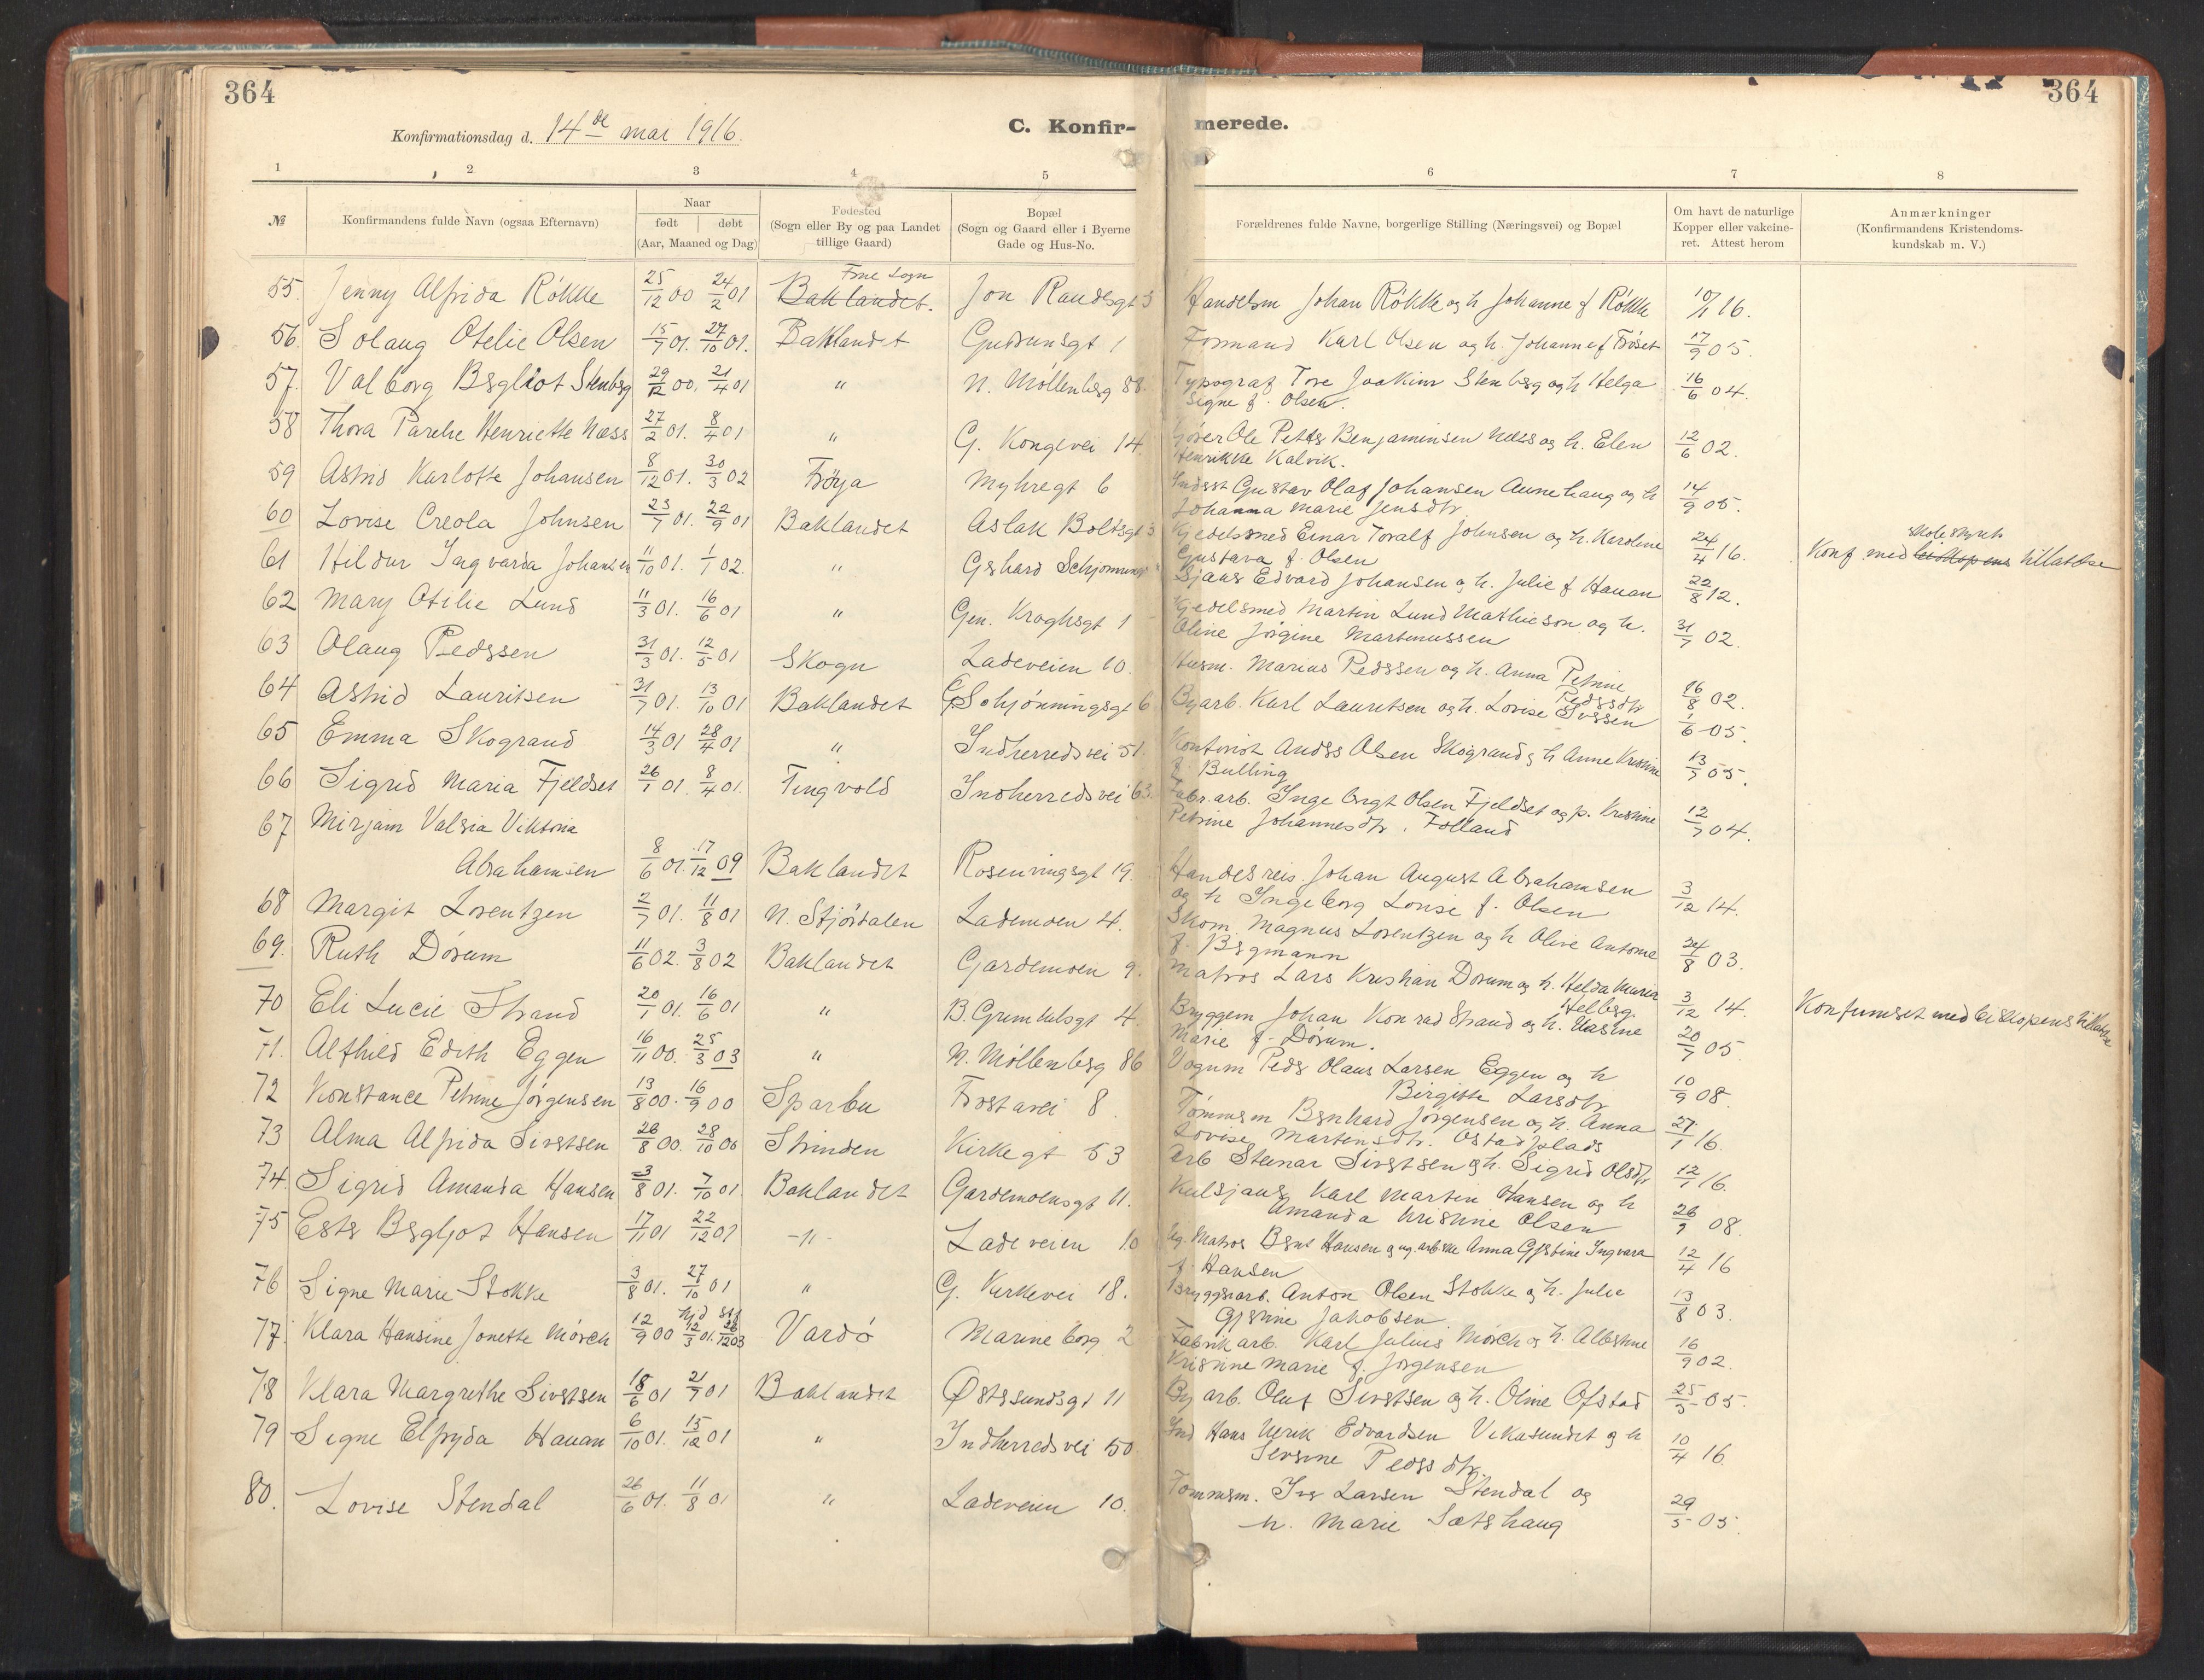 364
364
Konfirmationsdag d. 14de mai 1916.
C. Konfir-
merede.
1 2 3 4 5 6 7 8
№ Konfirmandens fulde Navn (ogsaa Efternavn) Naar født døbt (Aar, Maaned og Dag) Fødested (Sogn eller By og paa Landet tillige Gaard) Bopæl (Sogn og Gaard eller i Byerne Gade og Hus-No. Forældrenes fulde Navne, borgerlige Stilling (Næringsvei) og Bopæl Om havt de naturlige Kopper eller vakcineret. Attest herom Anmærkninger (Konfirmandens Kristendomskundskab m. V.)
Frue Sogn
55. Jenny Alfrida Rökke 25/12 00 24/2 01 Baklandet. Jon Raudsgt 3 Handelsm Johan Rökke og h Johanne f Rökke 10/1 16.
56. Solaug Otelie Olsen 15/7 01. 27/10 01. Baklandet Gudrunsgt 1 Formand Karl Olsen og h. Johanne f Fröset 17/9 05.
57. Valborg Bergliot Stenberg 29/12 00. 21/4 01 " N. Møllenberg 88. Typograf Tore Joakim Stenberg og h Helga 16/6 04.
Signe f. Olsen.
58 Thora Parelie Henriette Næss 27/2 01. 8/4 01 " G. Kongevei 14. Ole Peder Benjaminsen Næss og h. Elen 12/6 02.
Henrikke Kalvik.
59 Astrid Karlotte Johansen 8/12 01. 30/3 02 Fröya Myhregt 6 Gustav Olaf Johansen Aunehaug og h 14/9 05.
Johanna Marie Jensdtr.
60 Lovise Creola Johnsen 23/7 01. 22/9 01 Baklandet Aslak Boltsgt 3 Kjedelsmed Einar Toralf Johnsen og h. Karoline 24/4 16. Konf. med biskopens tillatelse
skolestyrets
Gustava f. Olsen
61 Hildur Ingvarda Johansen 11/10 01. 1/1 02. " Gerhard Schjønnings Sjauer Edvard Johansen og h. Julie f Hauan 22/8 12.
62 Mary Otilie Lund 11/3 01. 16/6 01 " Gen. Kroghsgt 1 Kjedelsmed Martin Lund Mathieson og h. 31/7 02.
Oline Jörgine Martinussen
63 Olaug Pedersen 31/3 01. 12/5 01 Skogn Ladeveien 10. Husm. Marius Pedersen og h. Anna Petrine 16/8 02.
Pedersdtr
64 Astrid Lauritsen 31/7 01. 13/10 01 Baklandet G Schjönningsgt 6 Byarb. Karl Lauritsen og h. Lovise Iversen 1/6 05.
65 Emma Skogrand 14/3 01 28/4 01 " Indherredsvei 51. Kontorist Anders Olsen Skogrand og h Anne Kristine 13/7 05.
f. Bulling
66 Sigrid Maria Fjeldset 26/1 01. 8/4 01. Tingvold Indherredsvei 63. Fabr. arb. Ingebrigt Olsen Fjeldset og p. Kristine 12/7 04.
Petrine Johannesdtr. Folland
67 Mirjam Valsia Viktoria
Abrahamsen 8/6 01. 17/12 09 Baklandet Rosenvingsgt 19. Handelsreis. Johan August Abrahamsen 3/12 14.
og h Ingeborg Lovise f. Olsen
68 Margit Lorentzen 2/7 01. 11/8 01 N. Stjördalen Lademoen 4. Skom. Magnus Lorentzen og h Olive Antona 24/8 03.
f. Bergmann
69. Ruth Dörum 11/6 02. 3/8 02 Baklandet Gardemoen 9. Matros Lars Kristian Dorum og h. Helda Maria 3/12 14. Konfirmeret med biskopens tillatelse
Helberg.
70 Eli Lucie Strand 20/1 01. 16/6 01 " B. Grimkelsgt 4. Bryggem Johan Konrad Strand og h. Hasine 20/7 05.
Marie f. Dörum.
71. Alfhild Edith Eggen 16/11 00. 25/3 03 " N. Møllenberg 86 Vognm Peder Olaus Larsen Eggen og h 10/9 08.
Birgitte Larsdtr
72 Konstance Petrine Jörgensen 13/8 00. 16/9 00 Sparbu Frostavei 8. Tømmerm Bernhard Jörgensen og h. Anna 27/1 16.
Lovise Martinsdtr. Ostadplads
73 Alma Alfrida Sivertsen 26/8 00. 28/10 00 Strinden Kirkegt 53 Arb Steinar Sivertsen og h. Sigrid Olsdtr 12/1 16.
74. Sigrid Amanda Hansen 3/8 01. 7/10 01. Baklandet Gardemoensgt 11. Kulsjauer Karl Martin Hansen og h 26/9 08.
Amanda Kristine Olsen
75 Ester Bergljot Hansen 17/11 01 22/12 01 -"- Ladeveien 10 Ug. Matros Bernt Hansen og ug. arbske Anna Gjertine Ingvara 12/4 16
f. Hansen
76 Signe Marie Stokke 3/8 01. 27/10 01 " G. Kirkevei 18. Bryggeriarb. Anton Olsen Stokke og h. Julie 13/8 03.
Gjertine Jakobsen
hjd stf
77. Klara Hansine Jonette Mörch 12/9 00 12/3 01. 26/12 03 Vardö Marineborg 2 Fabrik arb. Karl Julius Mörch og h. Albertine 16/9 02.
Kristine Marie f. Jörgensen
78 Klara Margrethe Sivertsen 18/6 01 21/7 01 Baklandet Østersundsgt 11 Byarb. Oluf Sivertsen og h. Oline Ofstad 25/5 05.
79 Signe Elfryda Hauan 6/10 01. 15/12 01 " Indherredsvei 50 Hans Ulrik Edvardsen Vikasundet og h 10/4 16.
Serine Pedersdtr.
80. Lovise Stendal 26/6 01. 11/8 01 " Ladeveien 10. Tømmerm. Iver Larsen Stendal og 29/5 05.
h. Marie Sætershaug